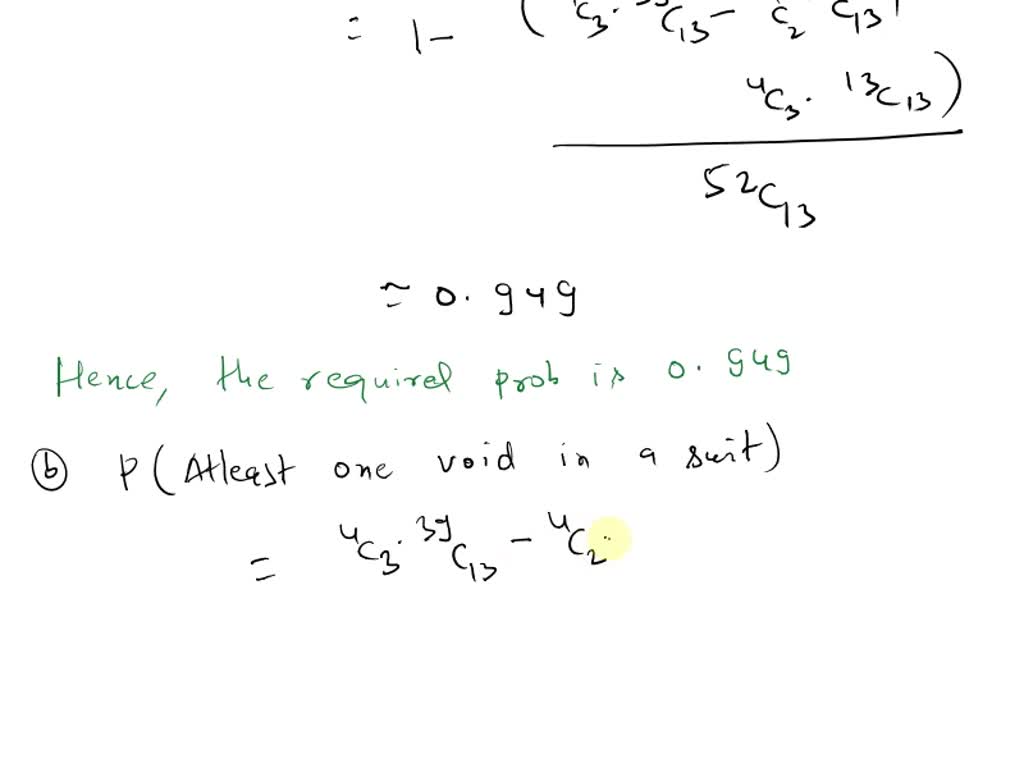 = 1 - ( C₃ · C₁₃ - C₂ C₁₃
⁴C₃ · ¹³C₁₃ )
⁵²C₁₃
≈ 0.949
Hence, the required prob is 0.949
ⓑ P (Atleast one void in a suit)
= ⁴C₃ · ³⁹C₁₃ - ⁴C₂ ·